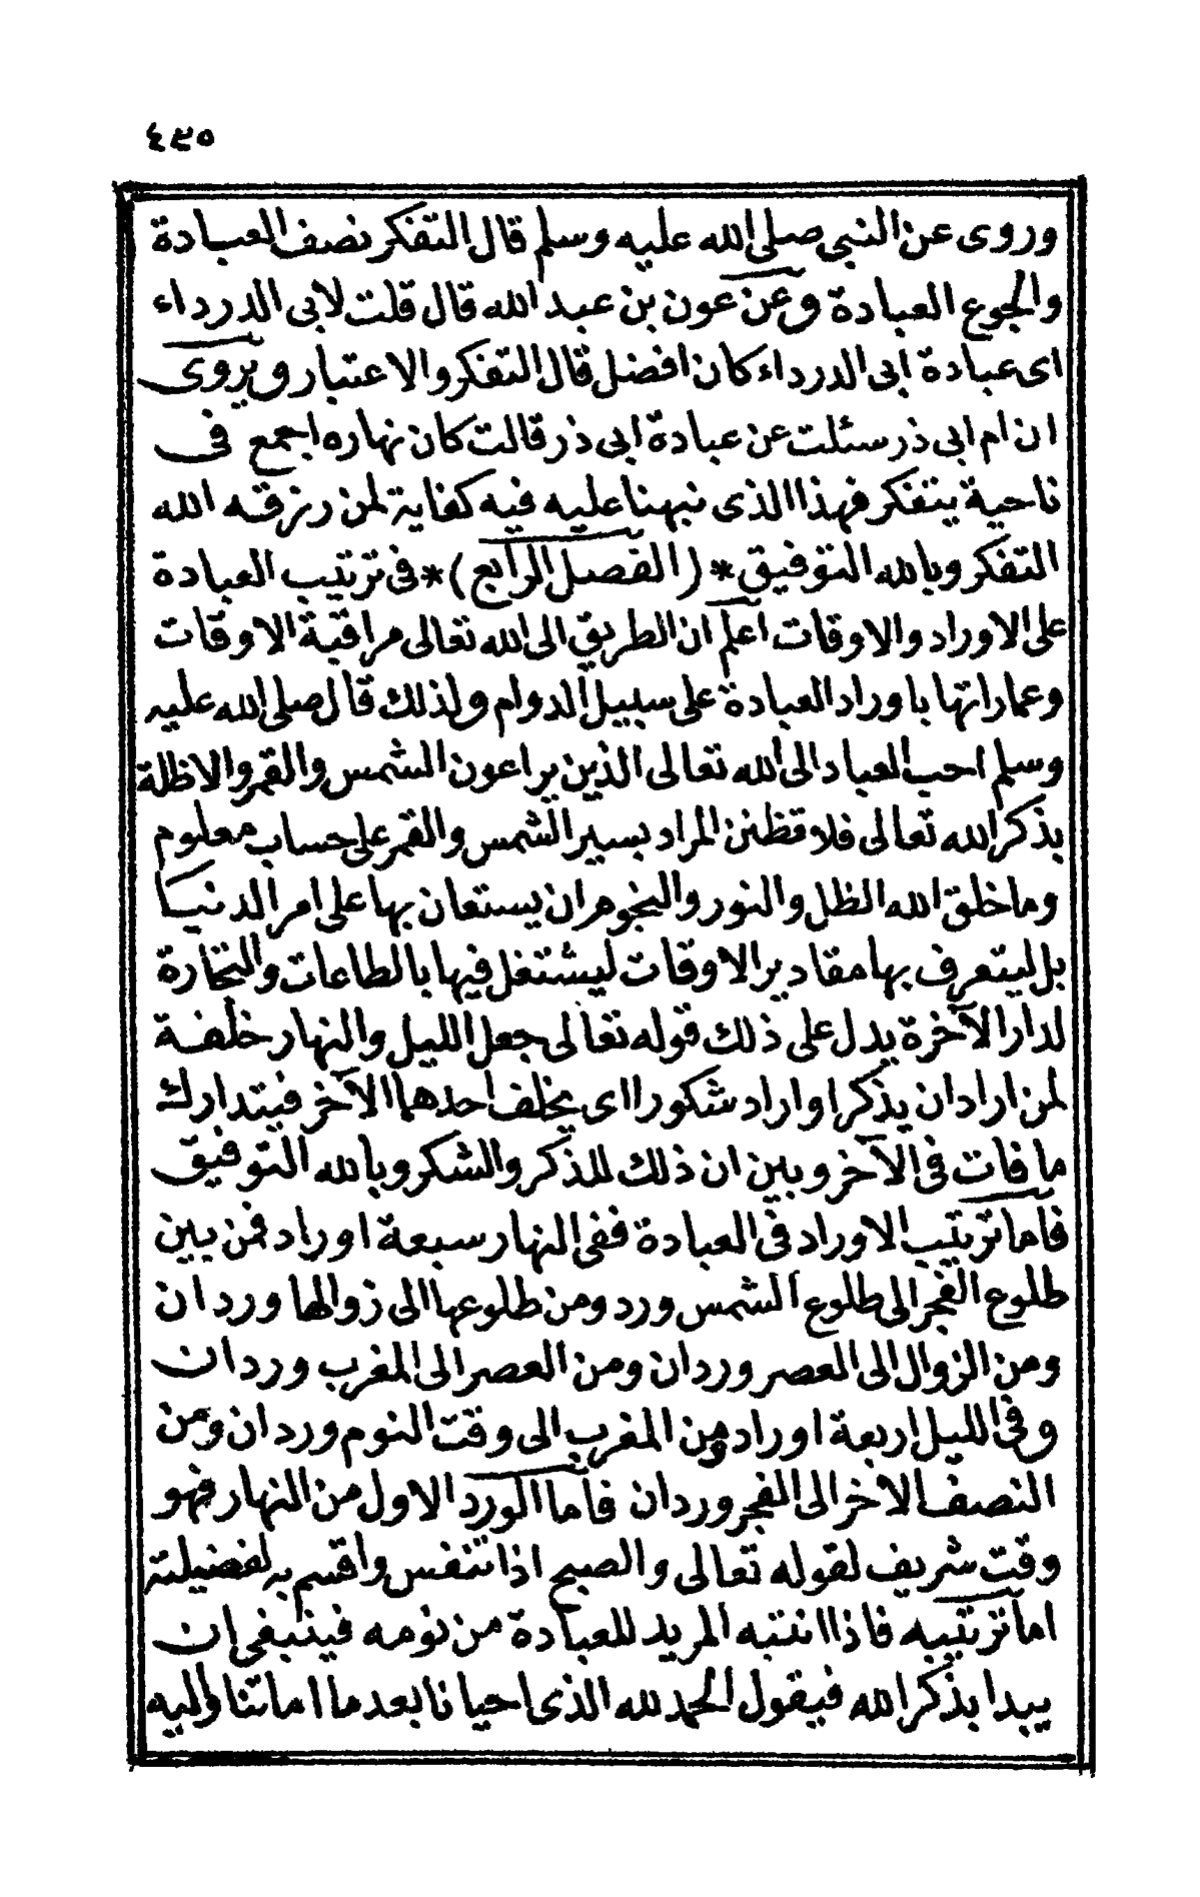 ٤٢٥
وروى عن النبى صلى الله عليه وسلم قال التفكر نصف العبادة
والجوع العبادة وعن عون بن عبد الله قال قلت لابى الدرداء
اى عبادة ابى الدرداء كان افضل قال التفكر والاعتبار ويروى
ان ام ابى ذر سئلت عن عبادة ابى ذر قالت كان نهاره اجمع فى
ناحية يتفكر فهذا الذى نبهنا عليه فيه كفاية لمن رزقه الله
التفكر وبالله التوفيق * ( الفصل الرابع ) * فى ترتيب العبادة
على الاوراد والاوقات اعلم ان الطريق الى الله تعالى مراقبة الاوقات
وعماراتها باوراد العبادة على سبيل الدوام ولذلك قال صلى الله عليه
وسلم احب العباد الى الله تعالى الذين يراعون الشمس والقمر والاظلة
بذكر الله تعالى فلا تظنن المراد بسير الشمس والقمر على حساب معلوم
وما خلق الله الظل والنور والنجوم ان يستعان بها على امر الدنيا
بل ليتعرف بها مقادير الاوقات ليشتغل فيها بالطاعات والتجارة
لدار الآخرة يدل على ذلك قوله تعالى جعل الليل والنهار خلفة
لمن اراد ان يذكر او اراد شكورا اى يخلف احدهما الآخر فيتدارك
ما فات فى الآخر وبين ان ذلك للذكر والشكر وبالله التوفيق
فاما ترتيب الاوراد فى العبادة ففى النهار سبعة اوراد فمن بين
طلوع الفجر الى طلوع الشمس ورد ومن طلوعها الى زوالها وردان
ومن الزوال الى العصر وردان ومن العصر الى المغرب وردان
وفى الليل اربعة اوراد ومن المغرب الى وقت النوم وردان ومن
النصف الآخر الى الفجر وردان فاما الورد الاول من النهار فهو
وقت شريف لقوله تعالى والصبح اذا تنفس واقسم به لفضيلته
اما ترتيبه فاذا انتبه المريد للعبادة من نومه فينبغى ان
يبدا بذكر الله فيقول الحمد لله الذى احيانا بعد ما اماتنا واليه